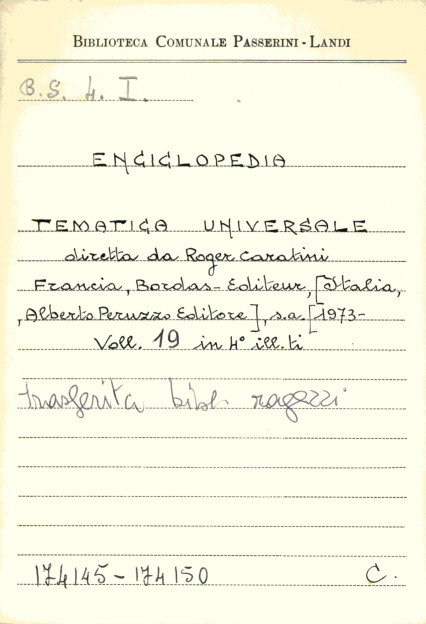 BIBLIOTECA COMUNALE PASSERINI - LANDI
B.S. 4. I.
ENCICLOPEDIA
TEMATICA UNIVERSALE
diretta da Roger Caratini
Francia, Bordas-Editeur, [Italia,
, Alberto Peruzzo Editore], s.a. [1973-
Voll. 19 in 4° ill.ti
trasferita bibl. ragazzi
174145 - 174150 C.